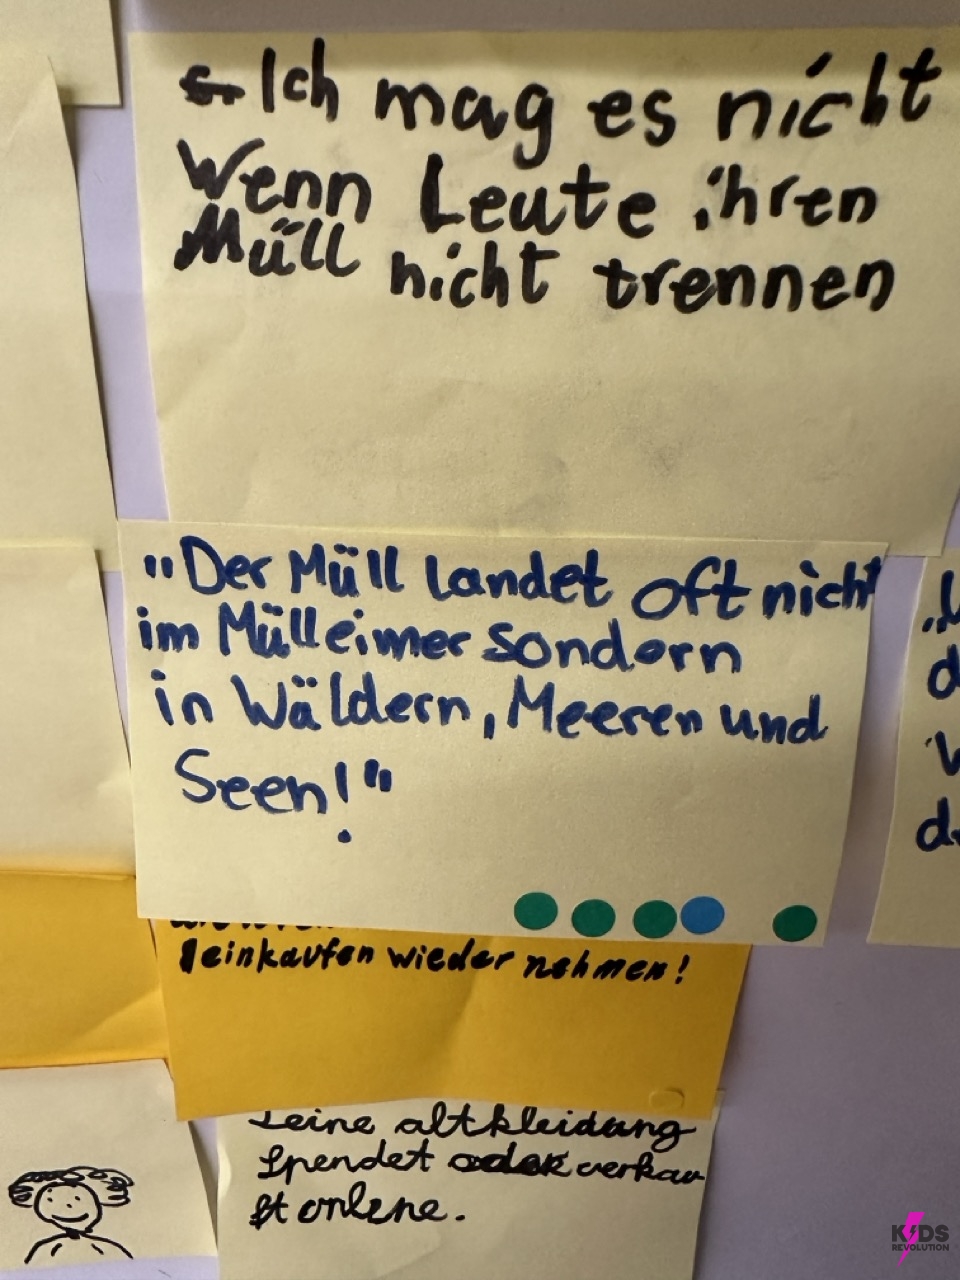 Ich mag es nicht
Wenn Leute ihren
Müll nicht trennen
"Der Müll landet oft nicht
im Mülleimer sondern
in Wäldern, Meeren und
Seen!"
einkaufen wieder nehmen!
seine altkleidung
spendet oder verkau
ft online.
KIDS
REVOLUTION